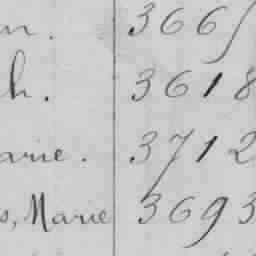 n. 3665
h. 3618
arie. 3712
s, Marie 3693